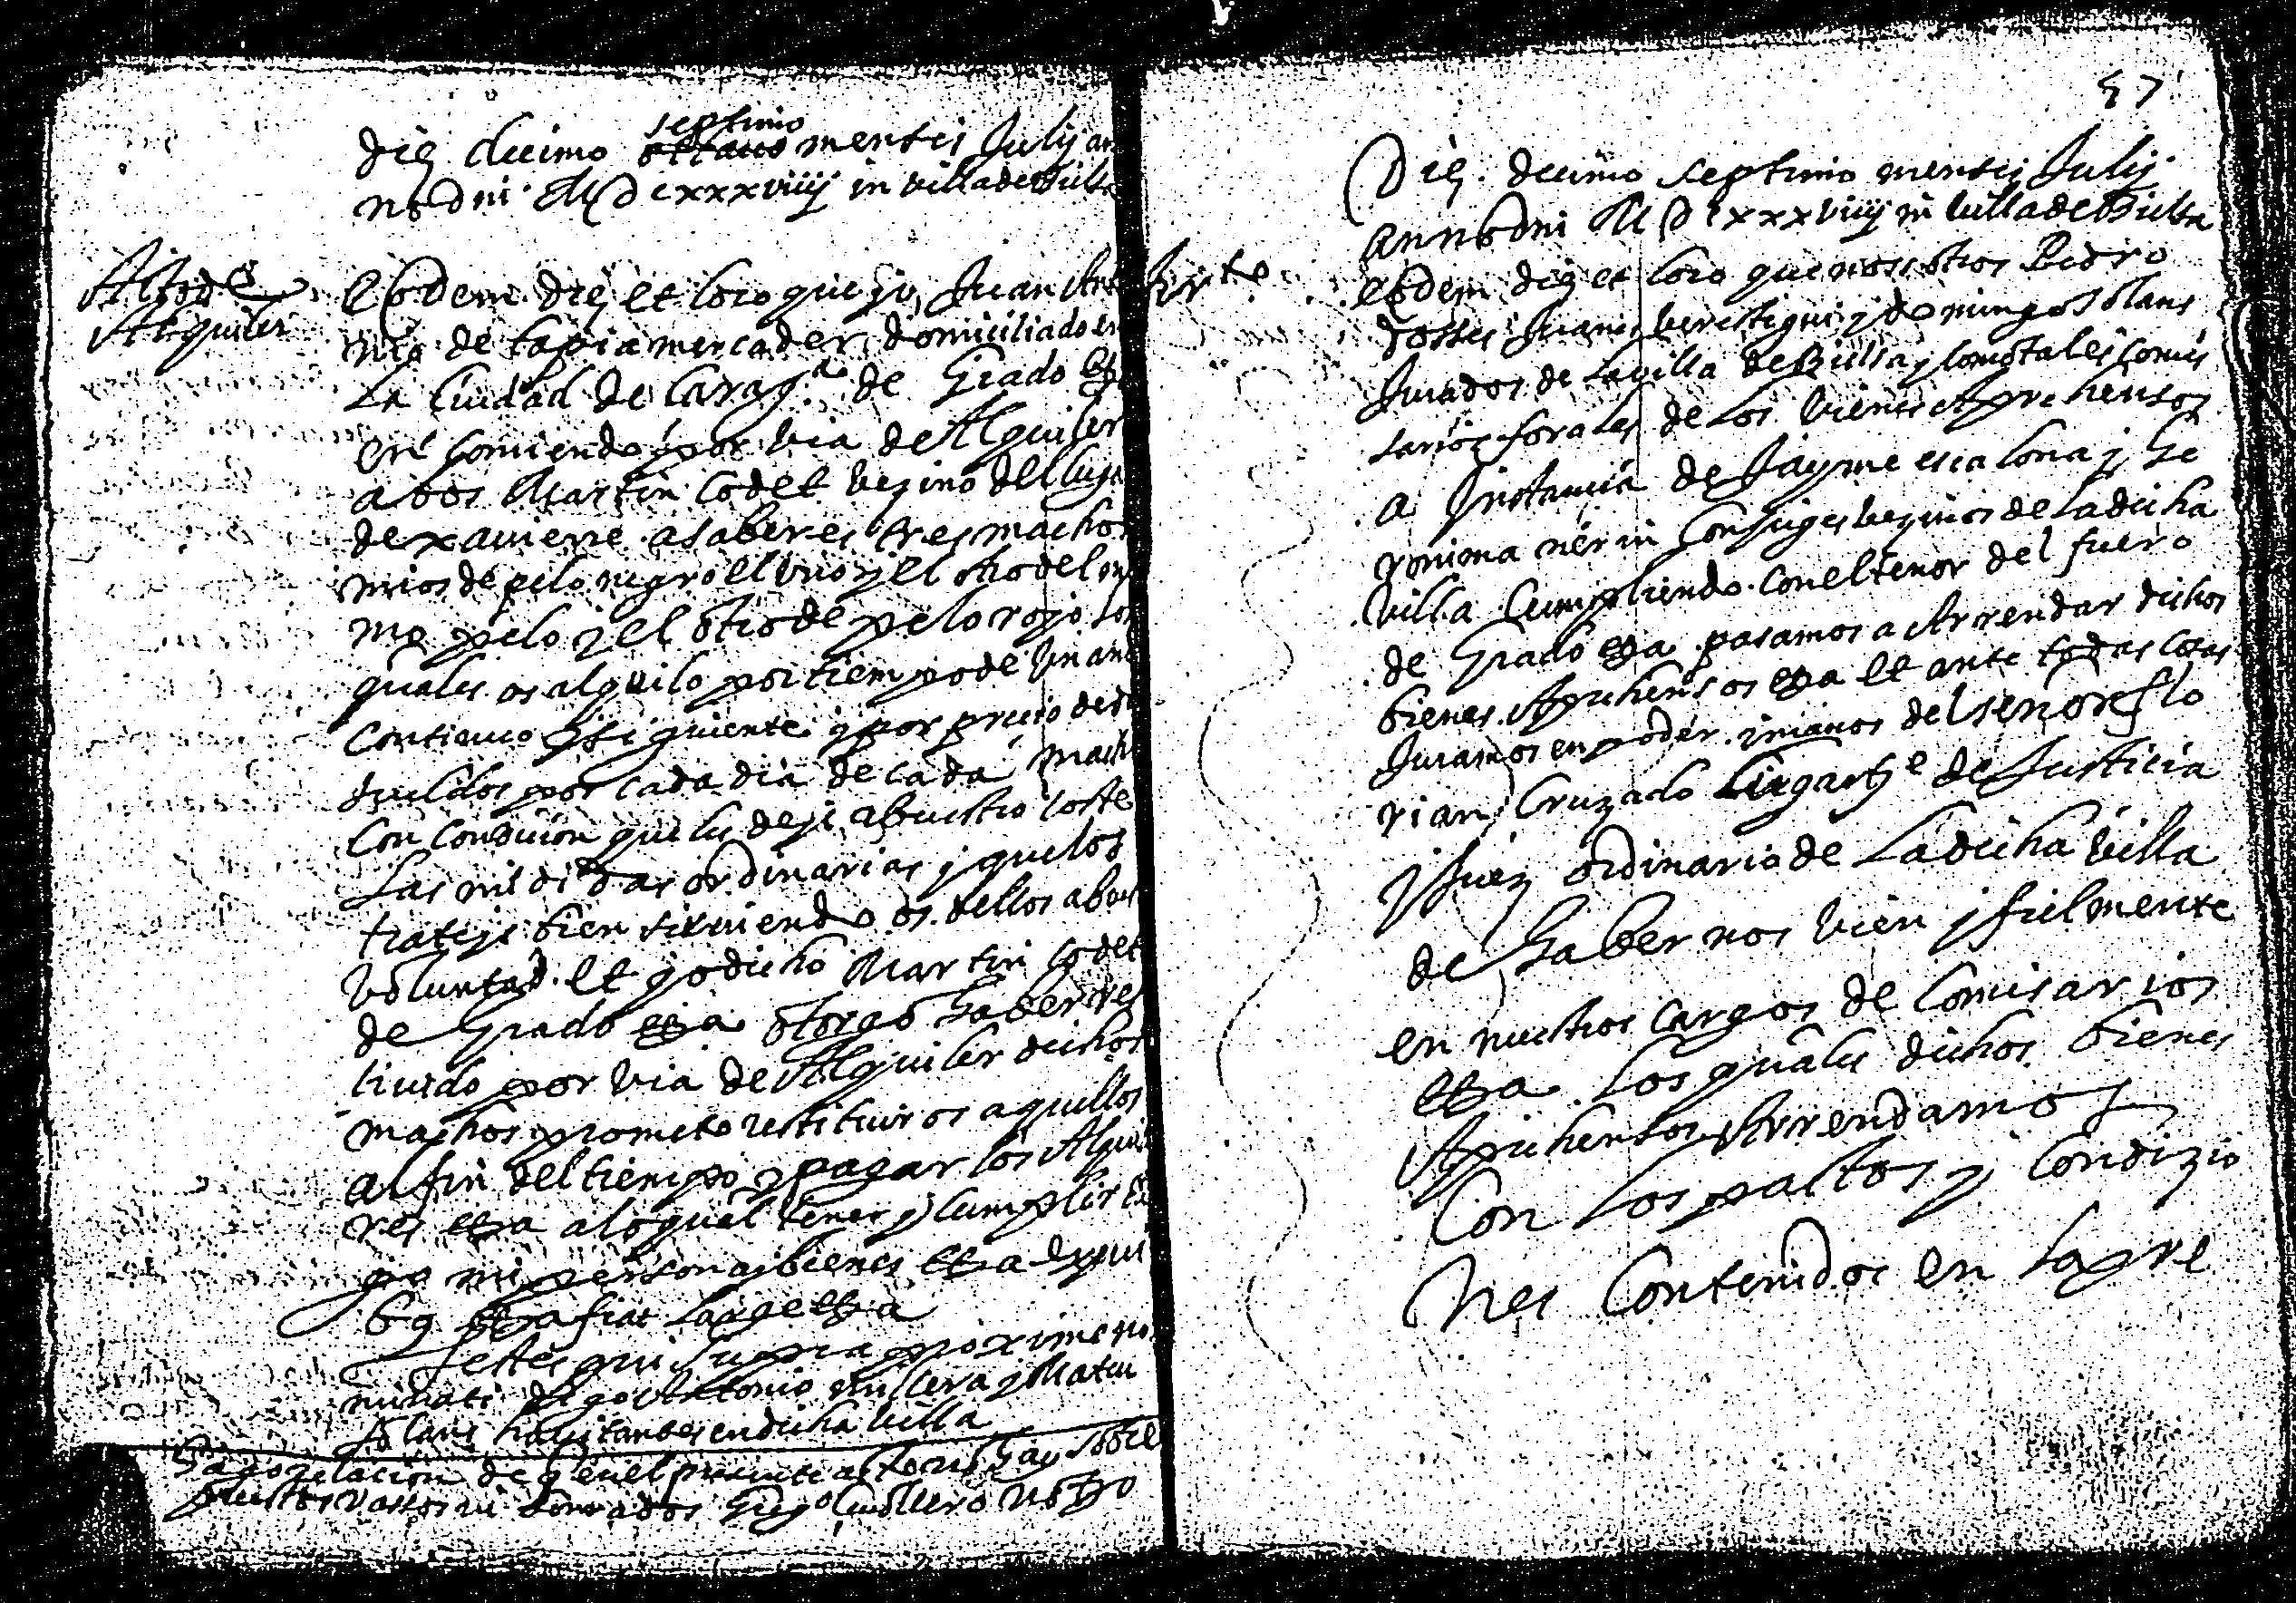 septimo
Die decimo octauo mensis Julij an
no dni MDCxxxviiij in villa de Bielsa
Acto de
Alquiler
Eodem die et loco que yo Juan Anto
nio de tapia mercader domiciliado en
La Ciudad de Carag.ª de Grado etª
en comiendo por via de Alquiler
a bos Martin Codet vezino del lugar
de xauierre a saber es tres machos
mios de pelo negro el vno y el otro del mis
mo pelo y el otro de pelo rojo los
quales os alquilo por tiempo de vn año
continuo y siguiente y por precio de
sueldos por cada dia de cada macho
con condicion que les deis a buestro coste
Las ordinarias y que los
trateis bien siruiendo os dellos a buest
voluntad. Et yo dicho Martin Codet
de Grado etª otorgo haber re
ciuido por via de Alquiler dichos
machos prometo restituir os aquellos
al fin del tiempo y pagar los Alquile
res etª a lo qual tener y cumplir obli
go mi persona y bienes etª
etª fiat large etª
Testes qui supra proxime no
minati digo Antonio y Mateu
Solans habitantes en dicha villa
Hago relacion de q en el presente acto no hay sobre
puestos rassos ni borrados not.º
57
Die decimo septimo mensis Julij
anno dni MDCxxxviiij in villa de Bielsa
Arrto
eodem die et loco que nosotros Pedro
Juanes berestigui y domingo Solans
Jurados de la villa de Bielsa y como tales comis
sarios forales de los bienes Aprehensos
a Instancia de Jayme escalona y Ge
ronima nerin Conjuges vezinos de la dicha
villa Cumpliendo con el tenor del fuero
de Grado etª pasamos a Arrendar dichos
bienes Aprehensos etª et ante todas cosas
Juramos en poder y manos del señor flo
rian Cruzado Lugarte de Justicia
y Juez ordinario de La dicha villa
de haber nos bien y fielmente
en nuestros cargos de Comisarios
etª Los quales dichos bienes
Aprehensos Arrendamos
Con los pactos y Condizio
nes Contenidos en la pre